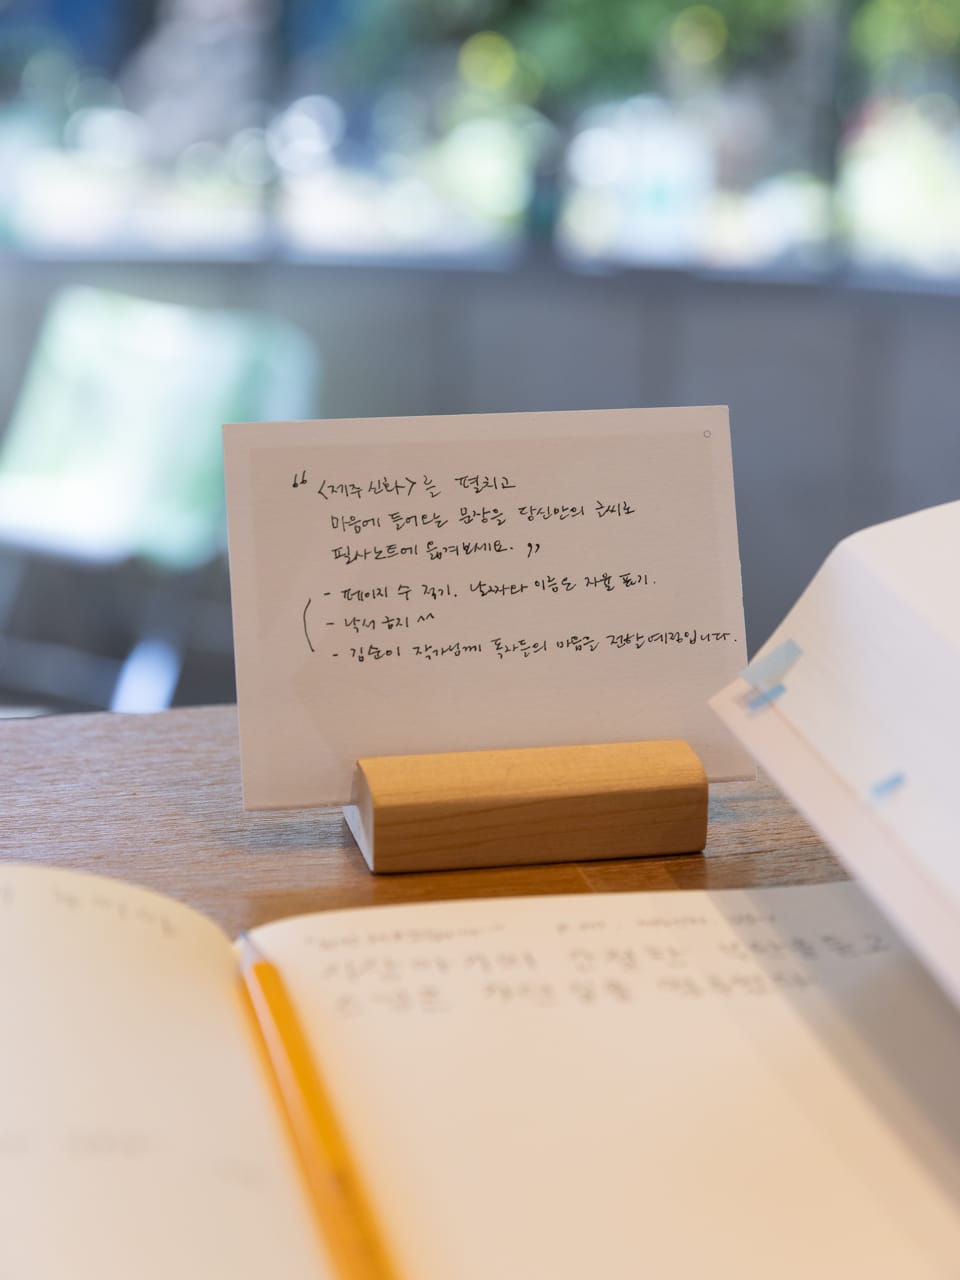 “ <제주 신화>를 펼치고
마음에 들어오는 문장을 당신만의 글씨로
필사노트에 옮겨보세요. ”
- 페이지 수 적기. 날짜와 이름은 자율 표기.
- 낙서 금지 ^^
- 김순이 작가님께 독자들의 마음을 전할 예정입니다.